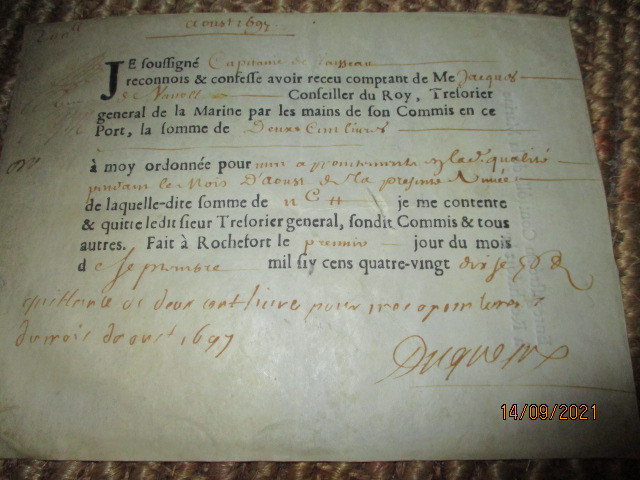 200lt
aoust 1697
JE soussigné Capitaine de vaisseau
reconnois & confesse avoir receu comptant de Me Jacques
de Vanolles Conseiller du Roy, Tresorier
general de la Marine par les mains de son Commis en ce
Port, la somme de Deux Cent livres
à moy ordonnée pour mes apointements en ladite qualité
pendant le mois D'aoust de la presente Année
de laquelle-dite somme de je me contente
& quitte ledit sieur Tresorier general, sondit Commis & tous
autres. Fait à Rochefort le premier jour du mois
de septembre mil six cens quatre-vingt dix sept
quittance de deux cent livres pour mes apointemens
du mois daoust 1697
Duquesne
14/09/2021